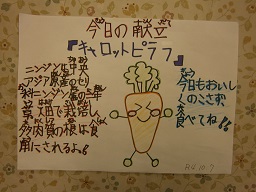 今日の献立
『キャロットピラフ』
ニンジンは中央
アジア原産のセリ
科ニンジン属の二年
草。畑で栽培し、
多肉質の根は食
用にされるよ。
今日もおいし
くのこさず
食べてね!!